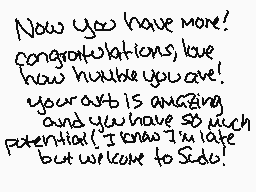 Now you have more!
congratulations, love
how humble you are!
your art is amazing
and you have so much
potential! I know I'm late
but welcome to Sudo!